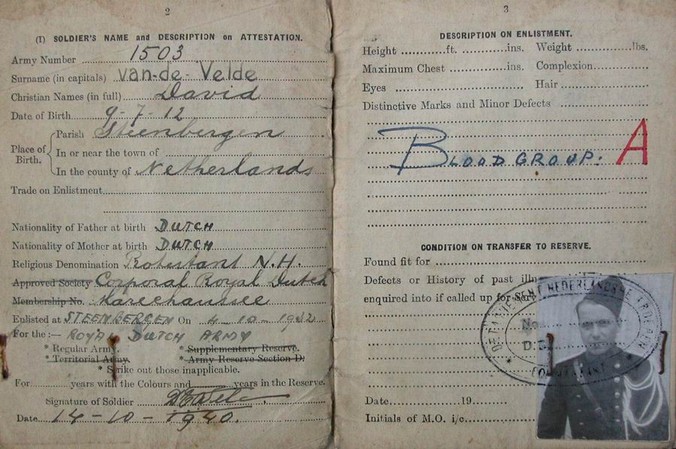 2
(I) SOLDIER'S NAME and DESCRIPTION on ATTESTATION.
Army Number 1503
Surname (in capitals) van-de-Velde
Christian Names (in full) David
Date of Birth 9-7-12
Place of Birth.
Parish Steenbergen
In or near the town of
In the county of Netherlands
Trade on Enlistment
Nationality of Father at birth DUTCH
Nationality of Mother at birth DUTCH
Religious Denomination Protestant N.H.
Approved Society Corporal Royal Dutch
Membership No. Marechaussee
Enlisted at STEENBERGEN On 4-10-1932
For the :— ROYAL DUTCH ARMY
* Regular Army. * Supplementary Reserve.
* Territorial Army. * Army Reserve Section D.
* Strike out those inapplicable.
For years with the Colours and years in the Reserve.
Signature of Soldier
Date 14-10-1940.
3
DESCRIPTION ON ENLISTMENT.
Height ft. ins. Weight lbs.
Maximum Chest ins. Complexion
Eyes Hair
Distinctive Marks and Minor Defects
BLOODGROUP: A
CONDITION ON TRANSFER TO RESERVE.
Found fit for
Defects or History of past
enquired into if called up for
NEDERLANDSCHE
No.
D.
Date 19
Initials of M.O. i/c